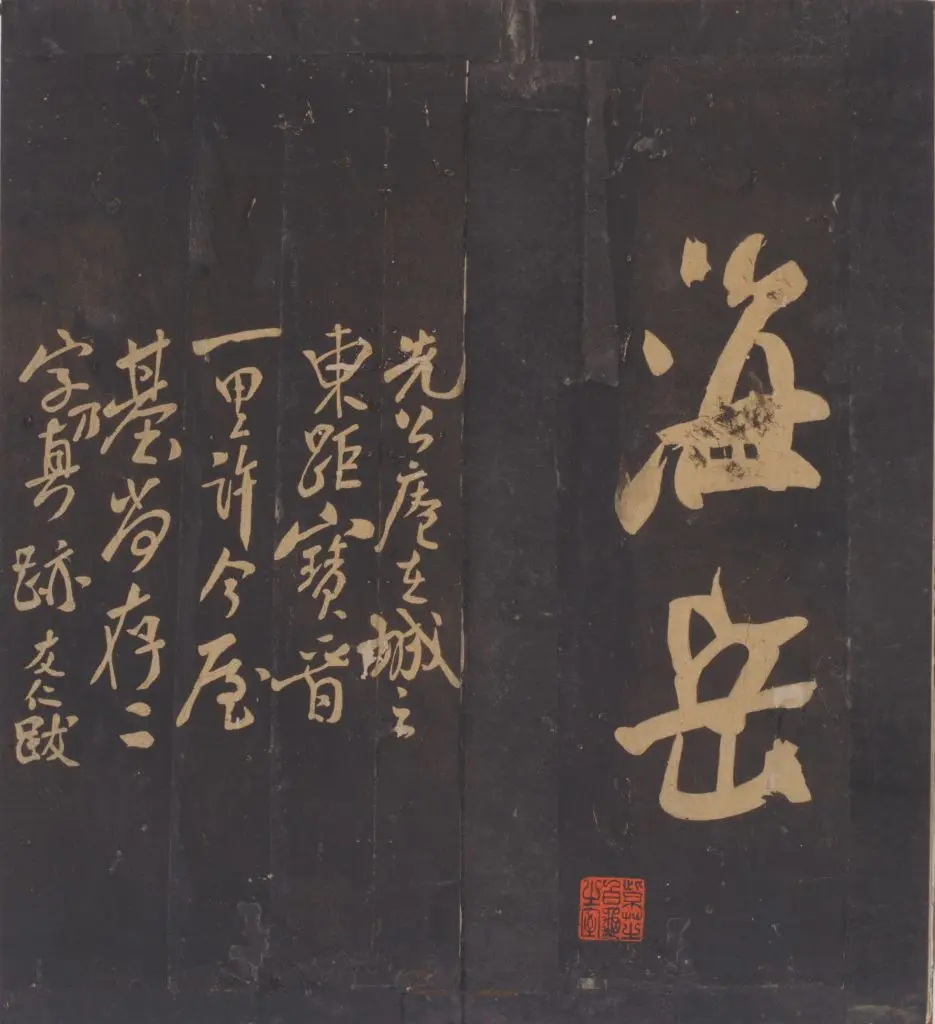 海岳
先公庵在城之
東距寶晉
一里許今屋
基尚存二
字乃真跡 友仁跋